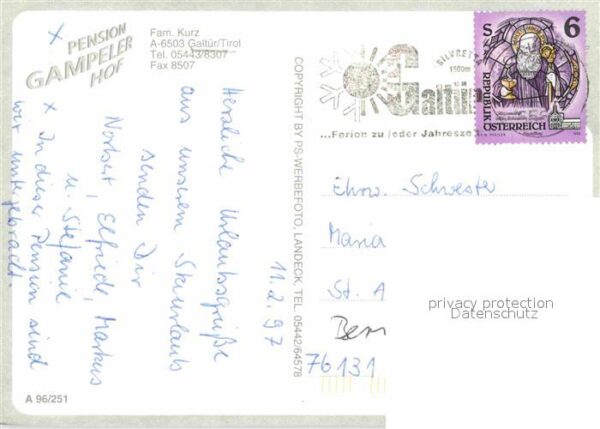 PENSION
GAMPELER
HOF
Fam. Kurz
A-6503 Galtür/Tirol
Tel. 05443/8307
Fax 8507
x
11.2.97
Herzliche Urlaubsgrüße
aus unserem Skiurlaub
senden Dir
Norbert, Elfriede, Markus
u. Stefanie
x In dieser Pension sind
wir untergebracht.
A 96/251
COPYRIGHT BY PS-WERBEFOTO, LANDECK, TEL. 05442/64578
1560m
Galtür
...Ferien zu jeder Jahresze
S 6
REPUBLIK
ÖSTERREICH
Ehrw. Schwester
Maria
St. A
76131
privacy protection
Datenschutz